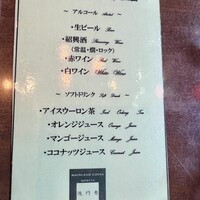 〜 アルコール Alcohol 〜
・生ビール Beer
・紹興酒 Shaoxing Wine
（常温・燗・ロック）
・赤ワイン Red Wine
・白ワイン White Wine
〜 ソフトドリンク Soft Drink 〜
・アイスウーロン茶 Iced Oolong Tea
・オレンジジュース Orange Juice
・マンゴージュース Mango Juice
・ココナッツジュース Coconut Juice